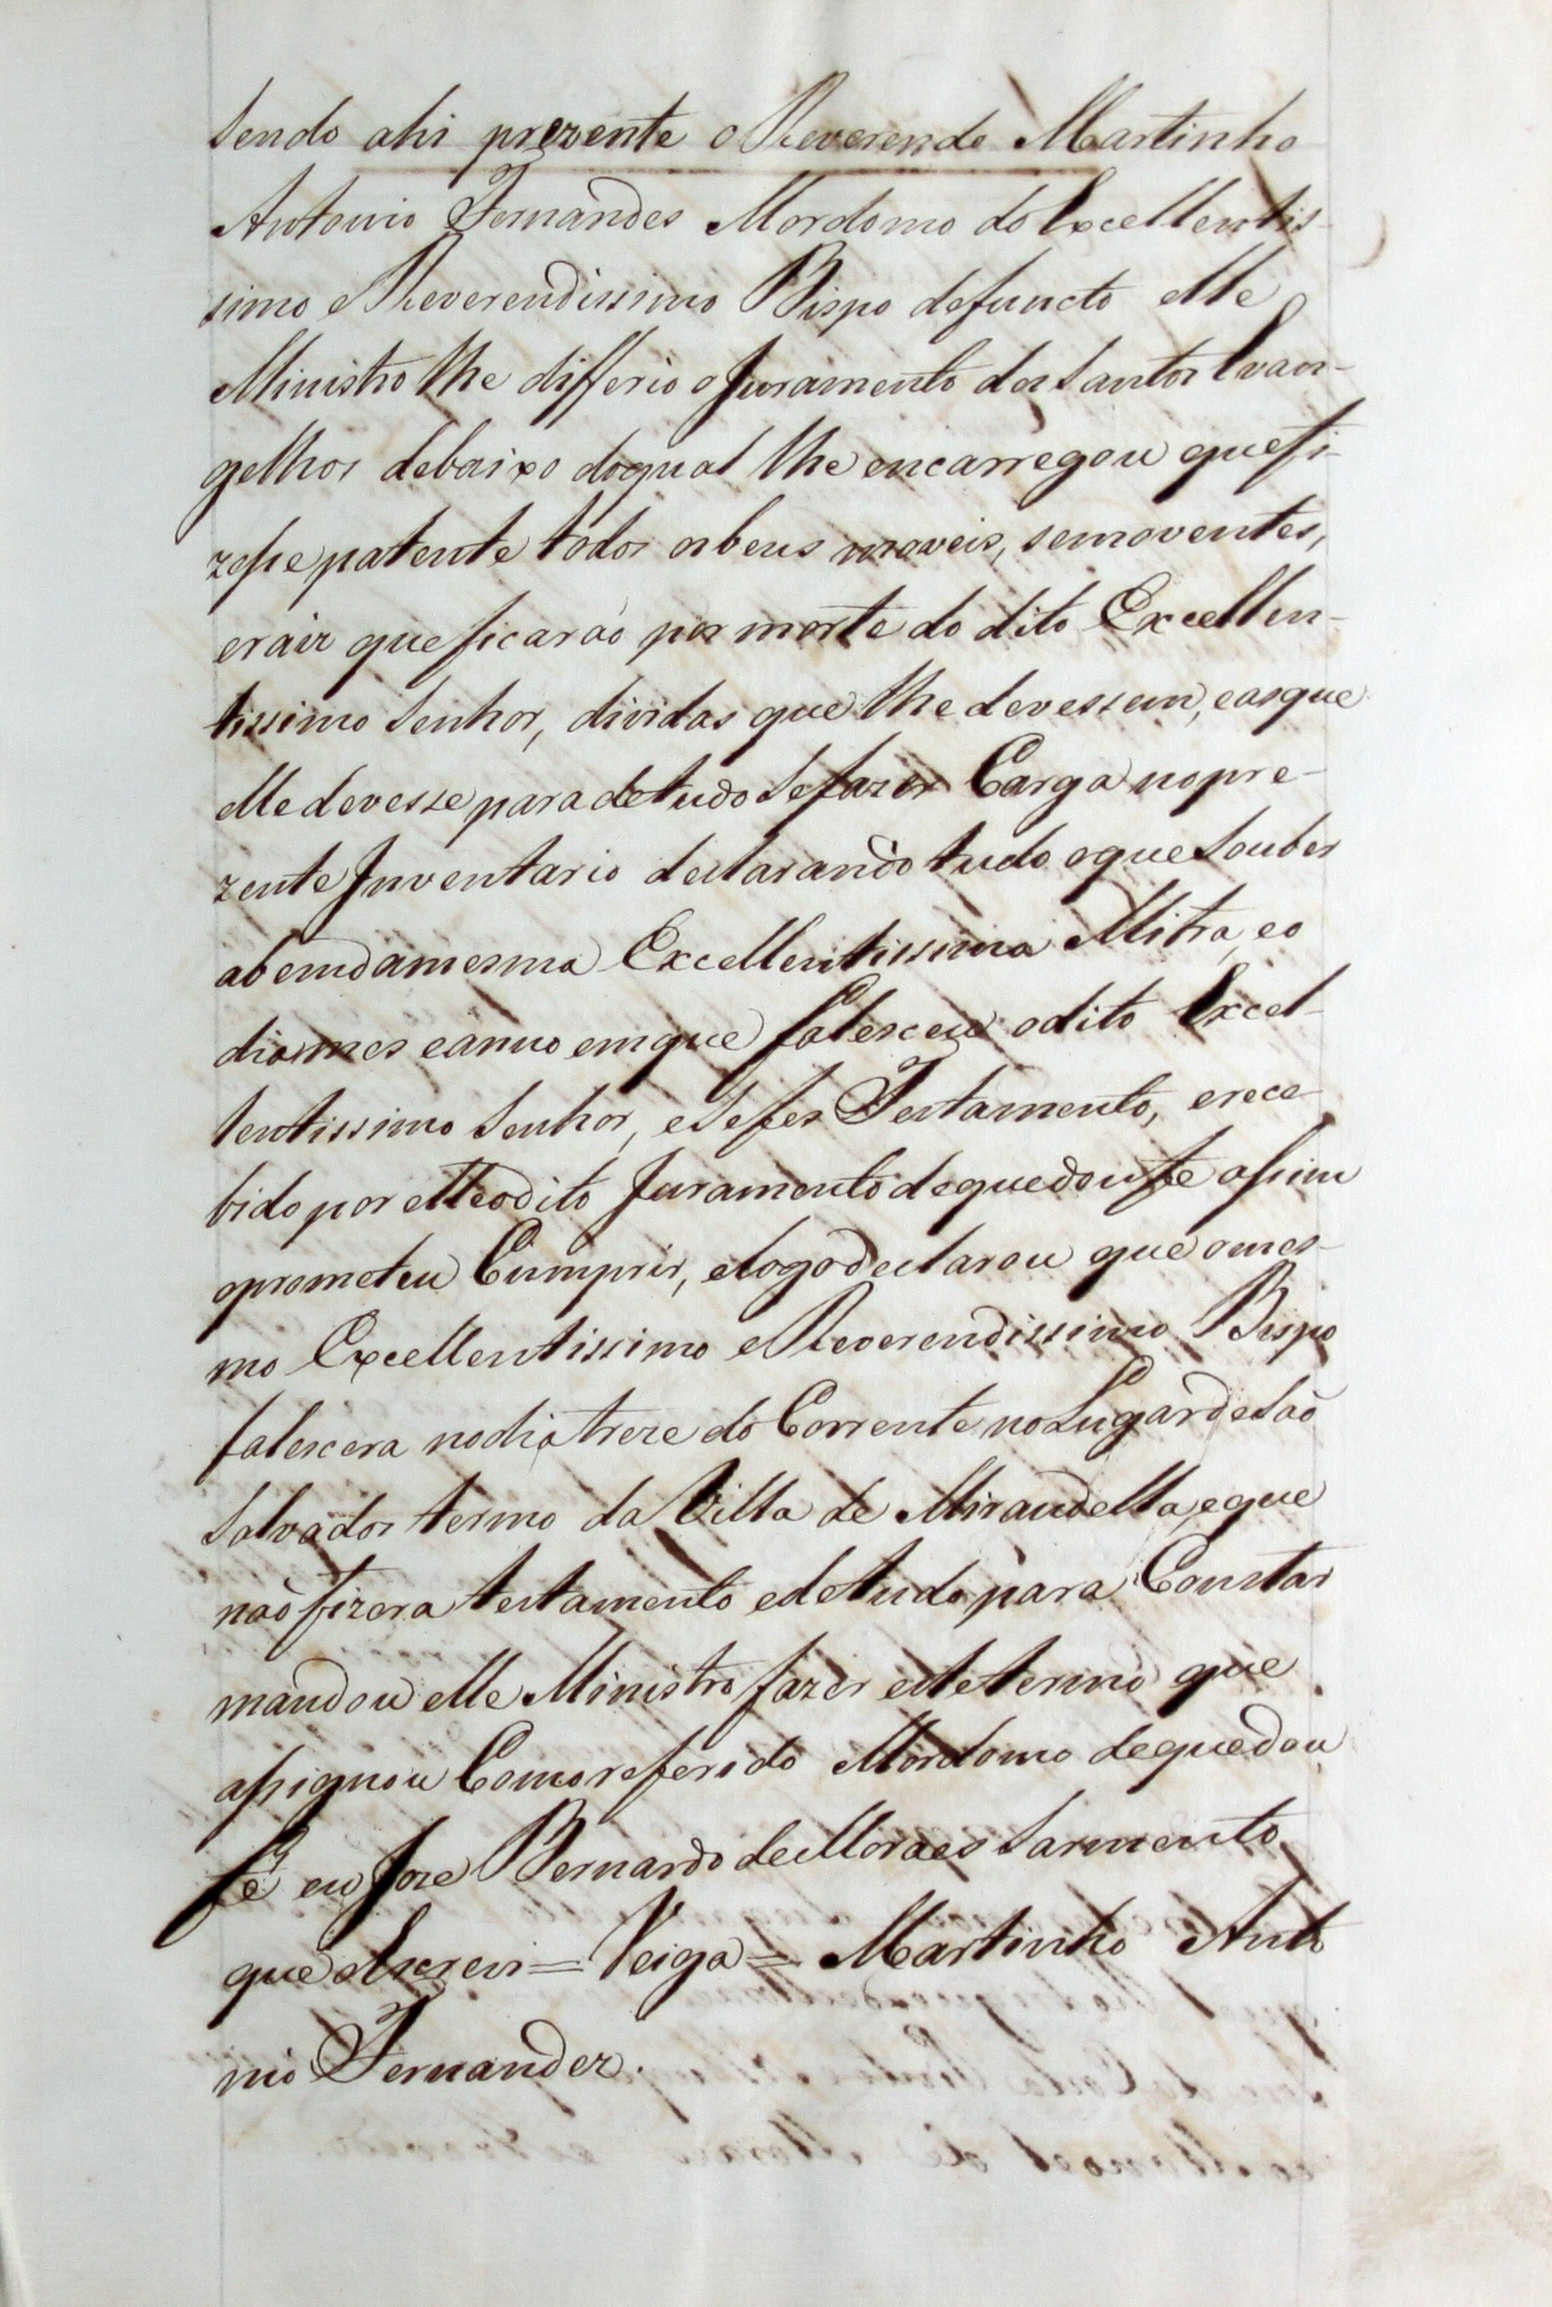 sendo ahi prezente o Reverendo Martinho
Antonio Fernandes Mordomo do Excellentis-
simo e Reverendissimo Bispo defuncto elle
Ministro lhe differio o Juramento dos Santos Evan-
gelhos debaixo do qual lhe encarregou que fi-
zesse patente todos os bens moveis, semoventes,
e raiz que ficarão por morte do dito Excellen-
tissimo Senhor, dividas que lhe devessem, e as que
elle devesse para de tudo se fazer Carga no pre-
zente Inventario declarando tudo o que souber
a bem da mesma Excellentissima Mitra, e o
dia mes e anno em que falesceu o dito Excel-
lentissimo Senhor, e se fes Testamento, e rece-
bido por elle o dito Juramento de que dou fe assim
o prometeu Cumprir, e logo declarou que o mes-
mo Excellentissimo e Reverendissimo Bispo
falescera no dia treze do Corrente no Lugar de São
Salvador termo da Villa de Mirandella, e que
não fizera testamento e de tudo para Constar
mandou elle Ministro fazer este termo que
assignou Com o referido Mordomo de que dou
fé eu Joze Bernardo de Moraes Sarmento
que o Escrevi = Veiga = Martinho Anto
nio Fernandez.